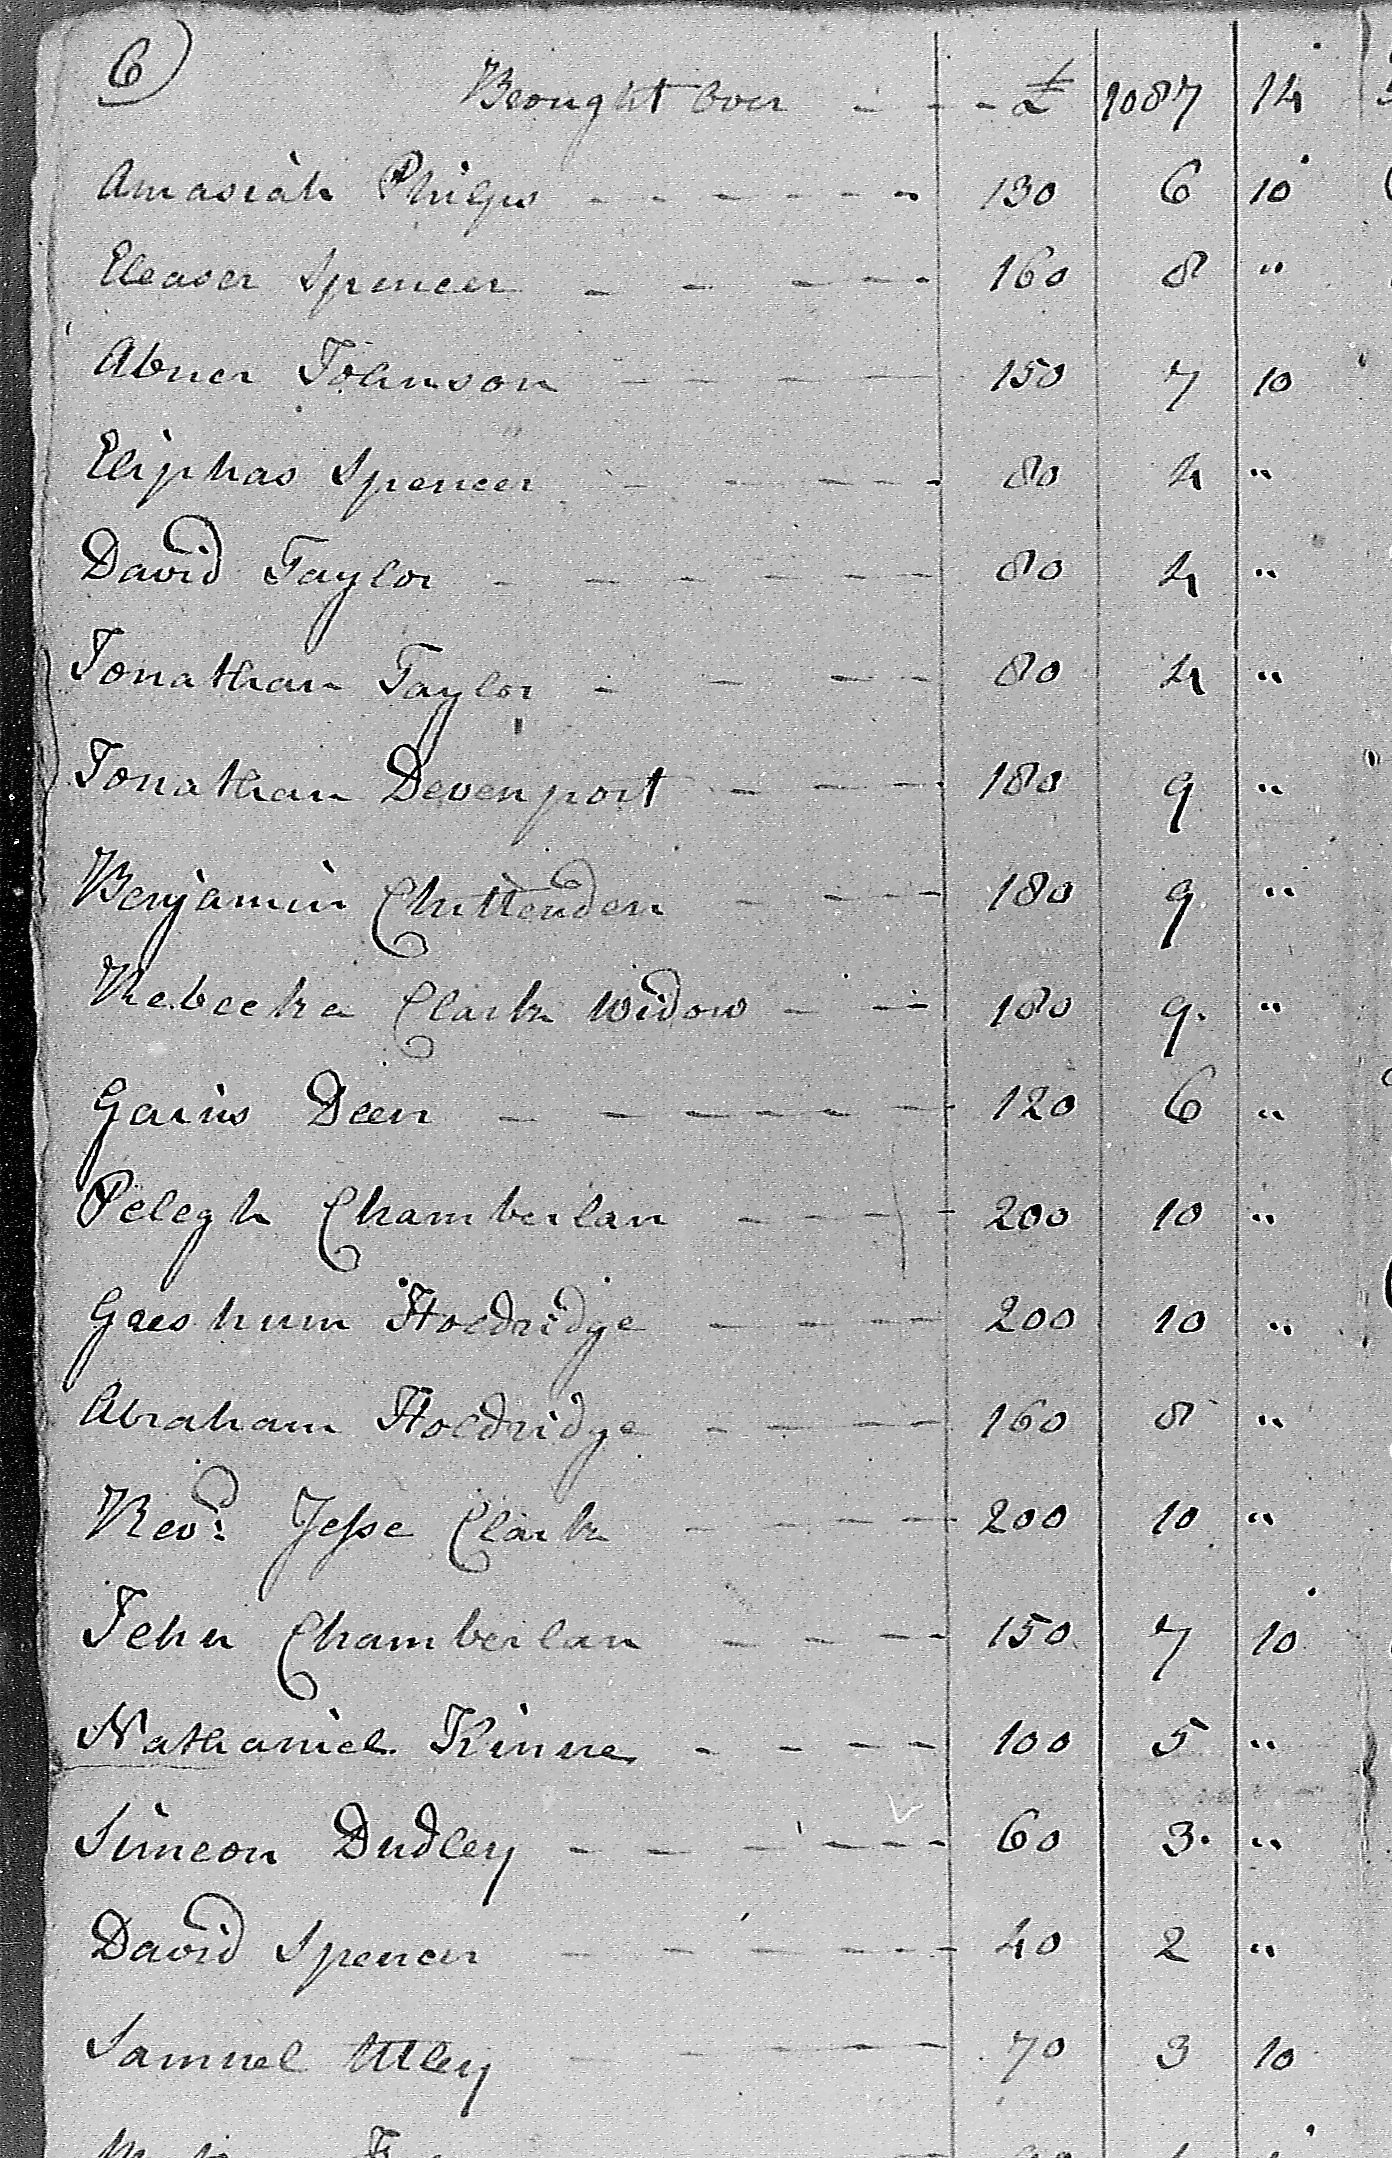 6)
Brought Over - - - £ 1087 14
Amasiah Philips - - - - - - 130 6 10
Eleaser Spencer - - - - 160 8 "
Abner Johnson - - - - 150 7 10
Eliphas Spencer - - - - - 80 4 "
David Taylor - - - - - - 80 4 "
Jonathan Taylor - - - - 80 4 "
Jonathan Devenport - - - - 180 9 "
Benjamin Chittenden - - - - 180 9 "
Rebecka Clark Widow - - - 180 9. "
Gaius Deen - - - - - - 120 6 "
Pelegh Chamberlan - - - - 200 10 "
Gershum Holdridge - - - - 200 10 "
Abraham Holdridge - - - - 160 8 "
Revd. Jesse Clark - - - - - 200 10 "
Jehu Chamberlan - - - - 150 7 10
Nathaniel Kinne - - - - 100 5 "
Simeon Dudley - - - - - - 60 3. "
David Spencer - - - - - - 40 2 "
Samuel Utley - - - - - 70 3 10